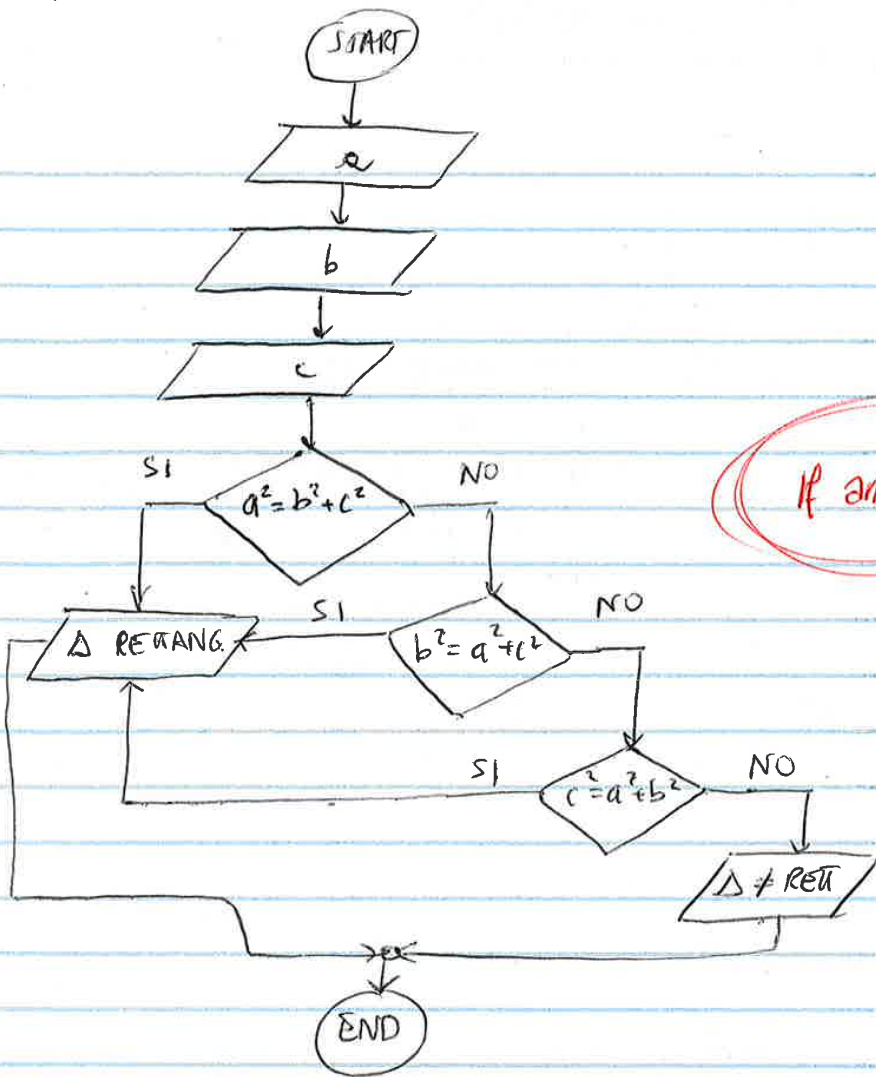 START
a
b
c
SI
a²=b²+c²
NO
Δ RETTANG.
SI
b²=a²+c²
NO
SI
c²=a²+b²
NO
Δ ≠ RETT
END
If